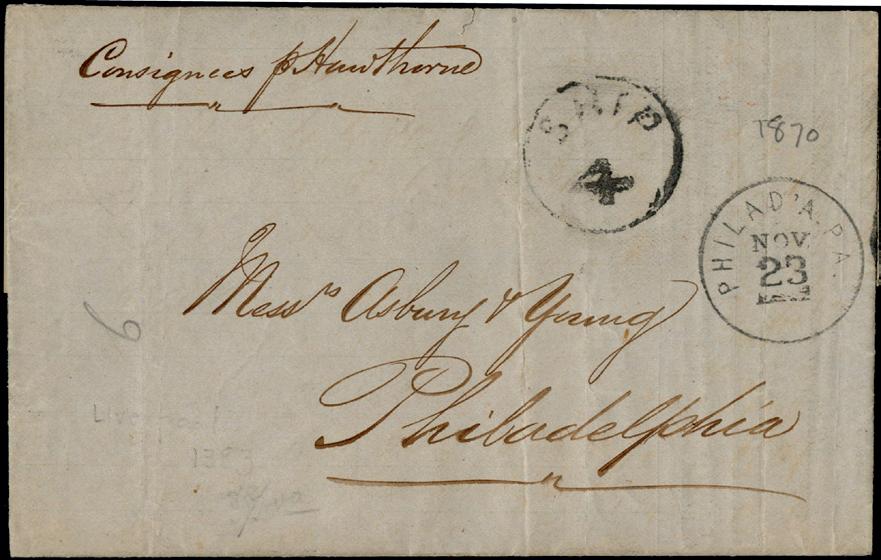 Consignees p Hawthorne
SHIP
4
1870
PHILAD'A. PA.
NOV
23
Messrs Asbury & Young
Philadelphia
9
Liverpool